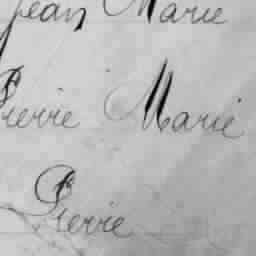 Jean Marie
Pierre Marie
Pierre